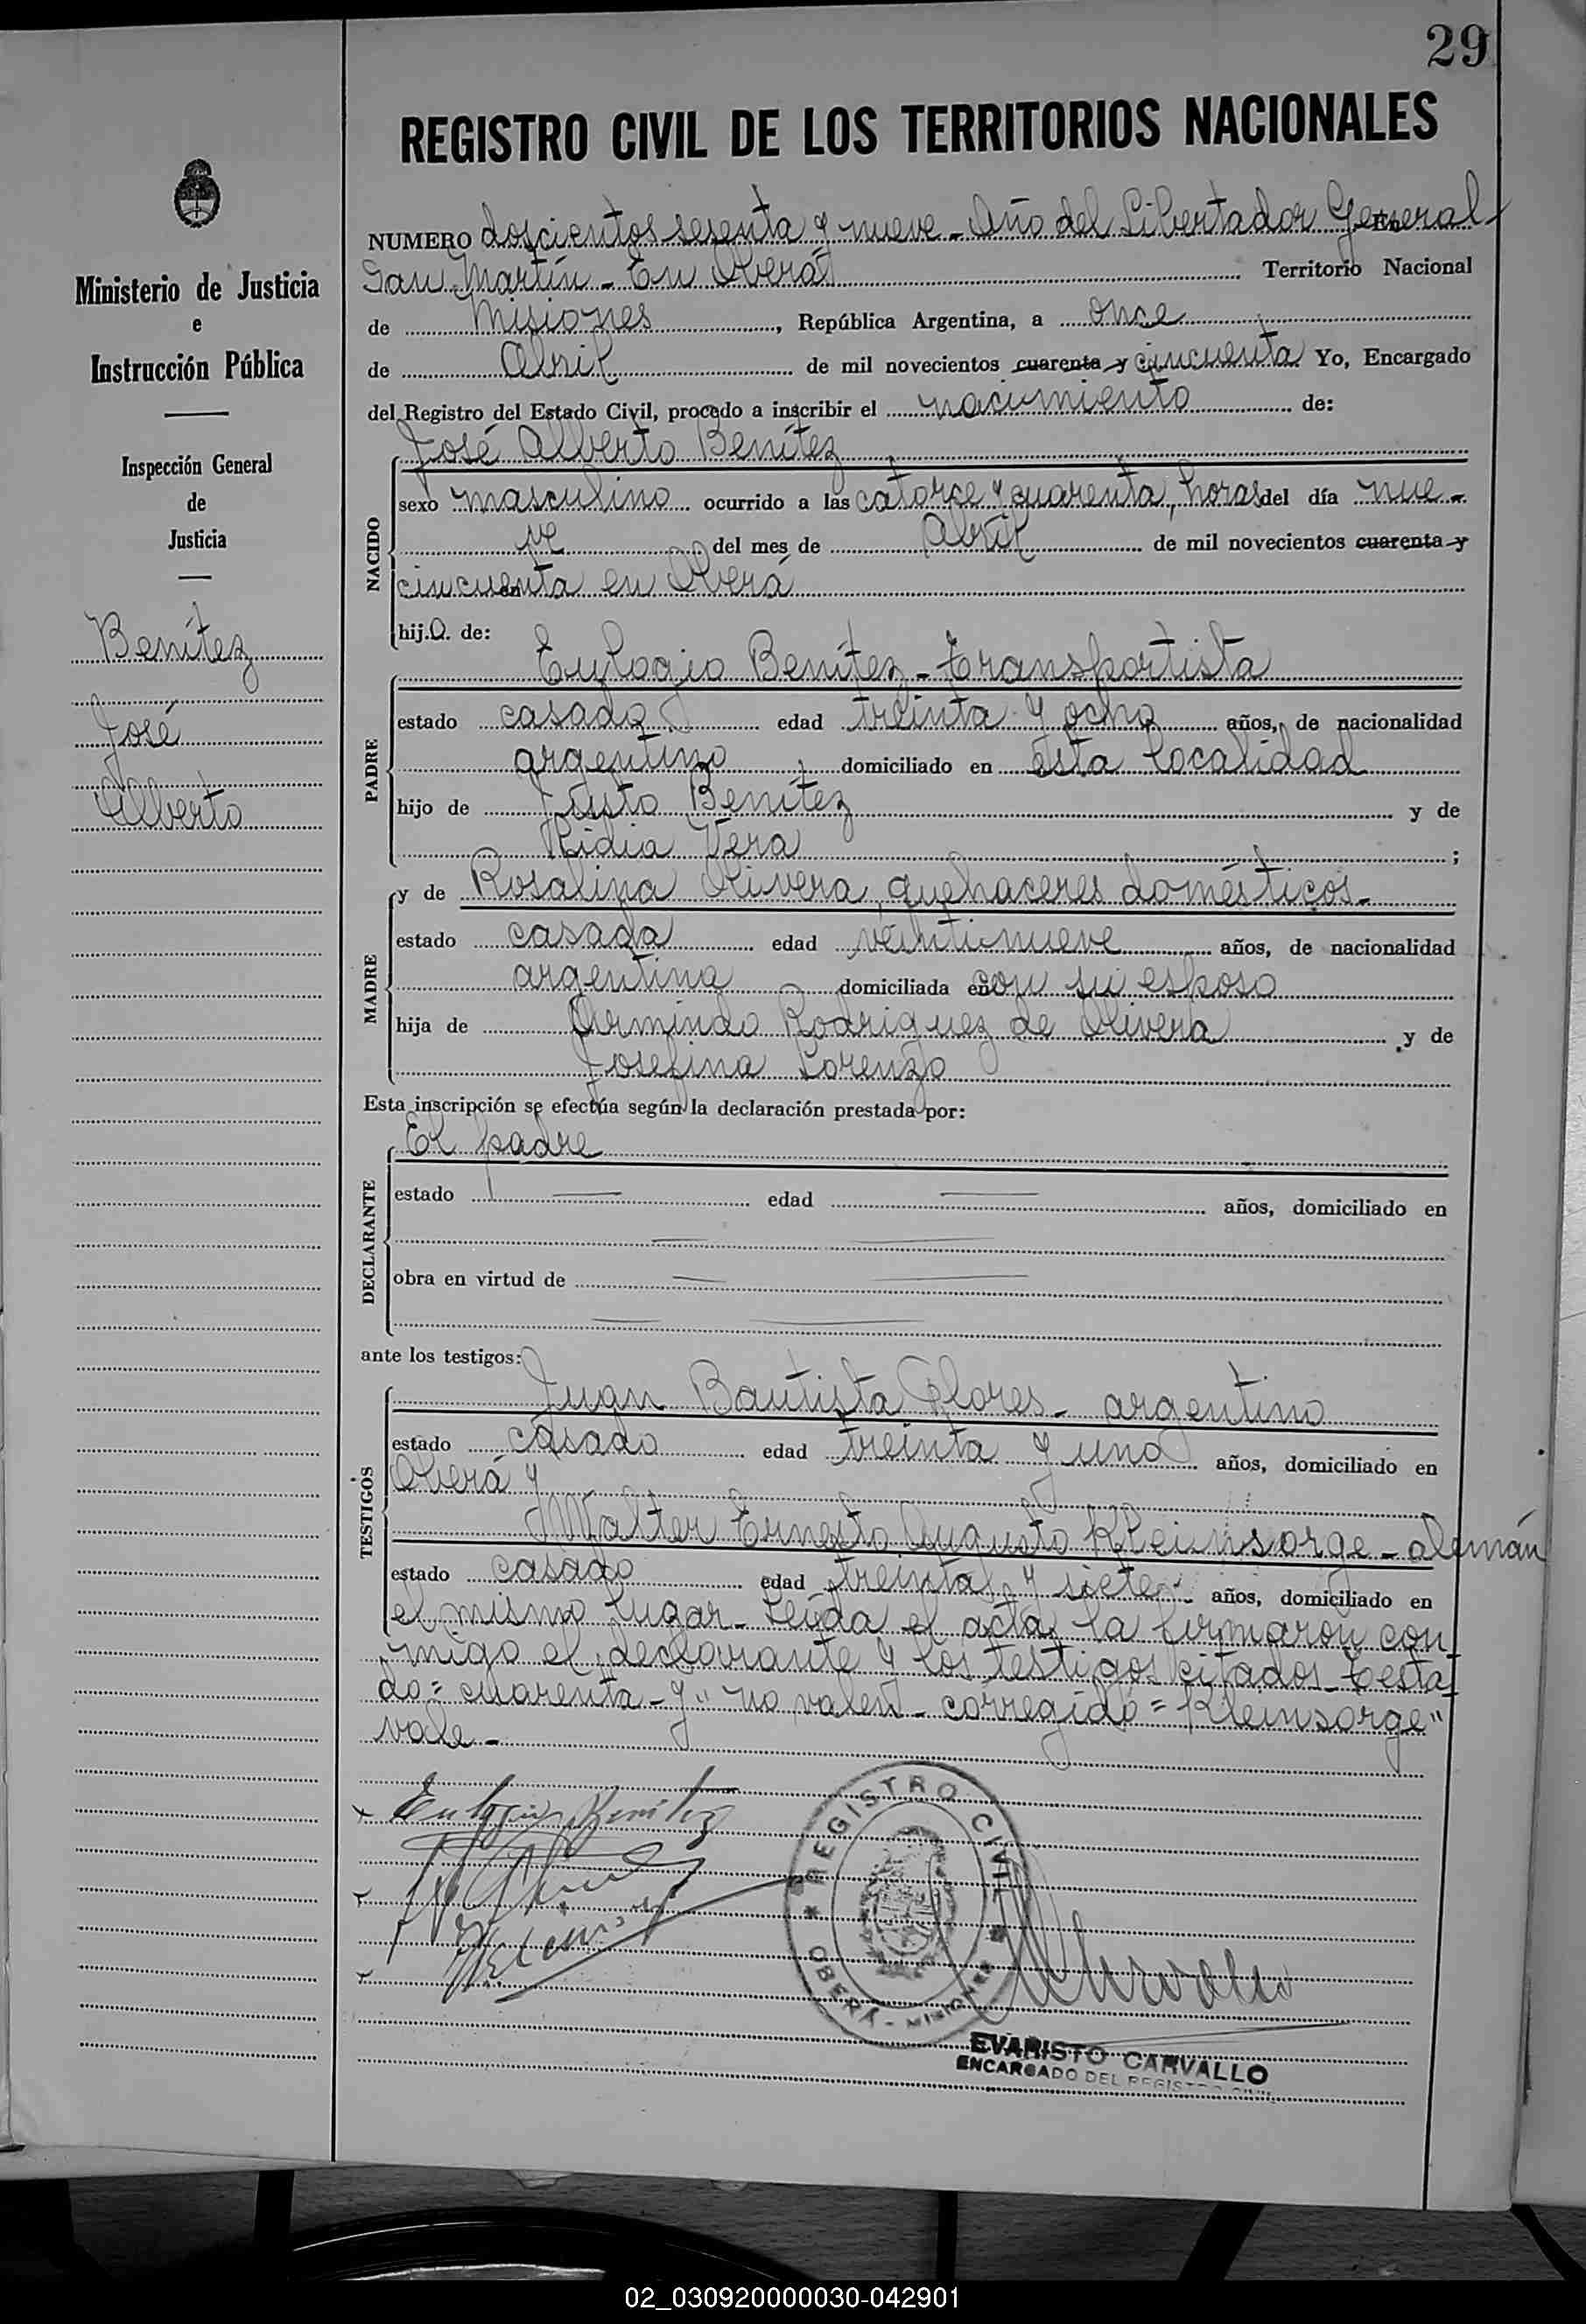 29
REGISTRO CIVIL DE LOS TERRITORIOS NACIONALES
Ministerio de Justicia
e
Instrucción Pública
Inspección General
de
Justicia
Benítez
José
Alberto
NUMERO doscientos sesenta y nueve - Año del Libertador General
San Martín - En Oberá Territorio Nacional
de Misiones, República Argentina, a once
de Abril de mil novecientos cuarenta y cincuenta Yo, Encargado
del Registro del Estado Civil, procedo a inscribir el nacimiento de:
NACIDO
José Alberto Benítez
sexo masculino ocurrido a las catorce y cuarenta, horas del día nue-
ve del mes de Abril de mil novecientos cuarenta y
cincuenta en Oberá
hijo. de:
PADRE
Eulogio Benítez - transportista
estado casado edad treinta y ocho años, de nacionalidad
argentino domiciliado en esta localidad
hijo de Justo Benítez y de
Vera ;
MADRE
y de Rosalina Olivera, quehaceres domésticos -
estado casada edad veintinueve años, de nacionalidad
argentina domiciliada con su esposo
hija de Armindo Rodriguez de Olivera y de
Josefina Lorenzo
Esta inscripción se efectúa según la declaración prestada por:
DECLARANTE
El padre
estado edad años, domiciliado en
obra en virtud de
ante los testigos:
TESTIGOS
Juan Bautista Flores - argentino
estado casado edad treinta y uno años, domiciliado en
Oberá y
Walter Ernesto Augusto Kleinsorge - alemán
estado casado edad treinta y siete años, domiciliado en
el mismo lugar - Leída el acta, la firmaron con
migo el declarante y los testigos citados - testa
do = cuarenta - y" no valen - corregido = Kleinsorge"
vale -
Eulogio Benítez
REGISTRO CIVIL
OBERÁ - MISIONES
EVARISTO CARVALLO
ENCARGADO DEL REGISTRO CIVIL
02_030920000030-042901